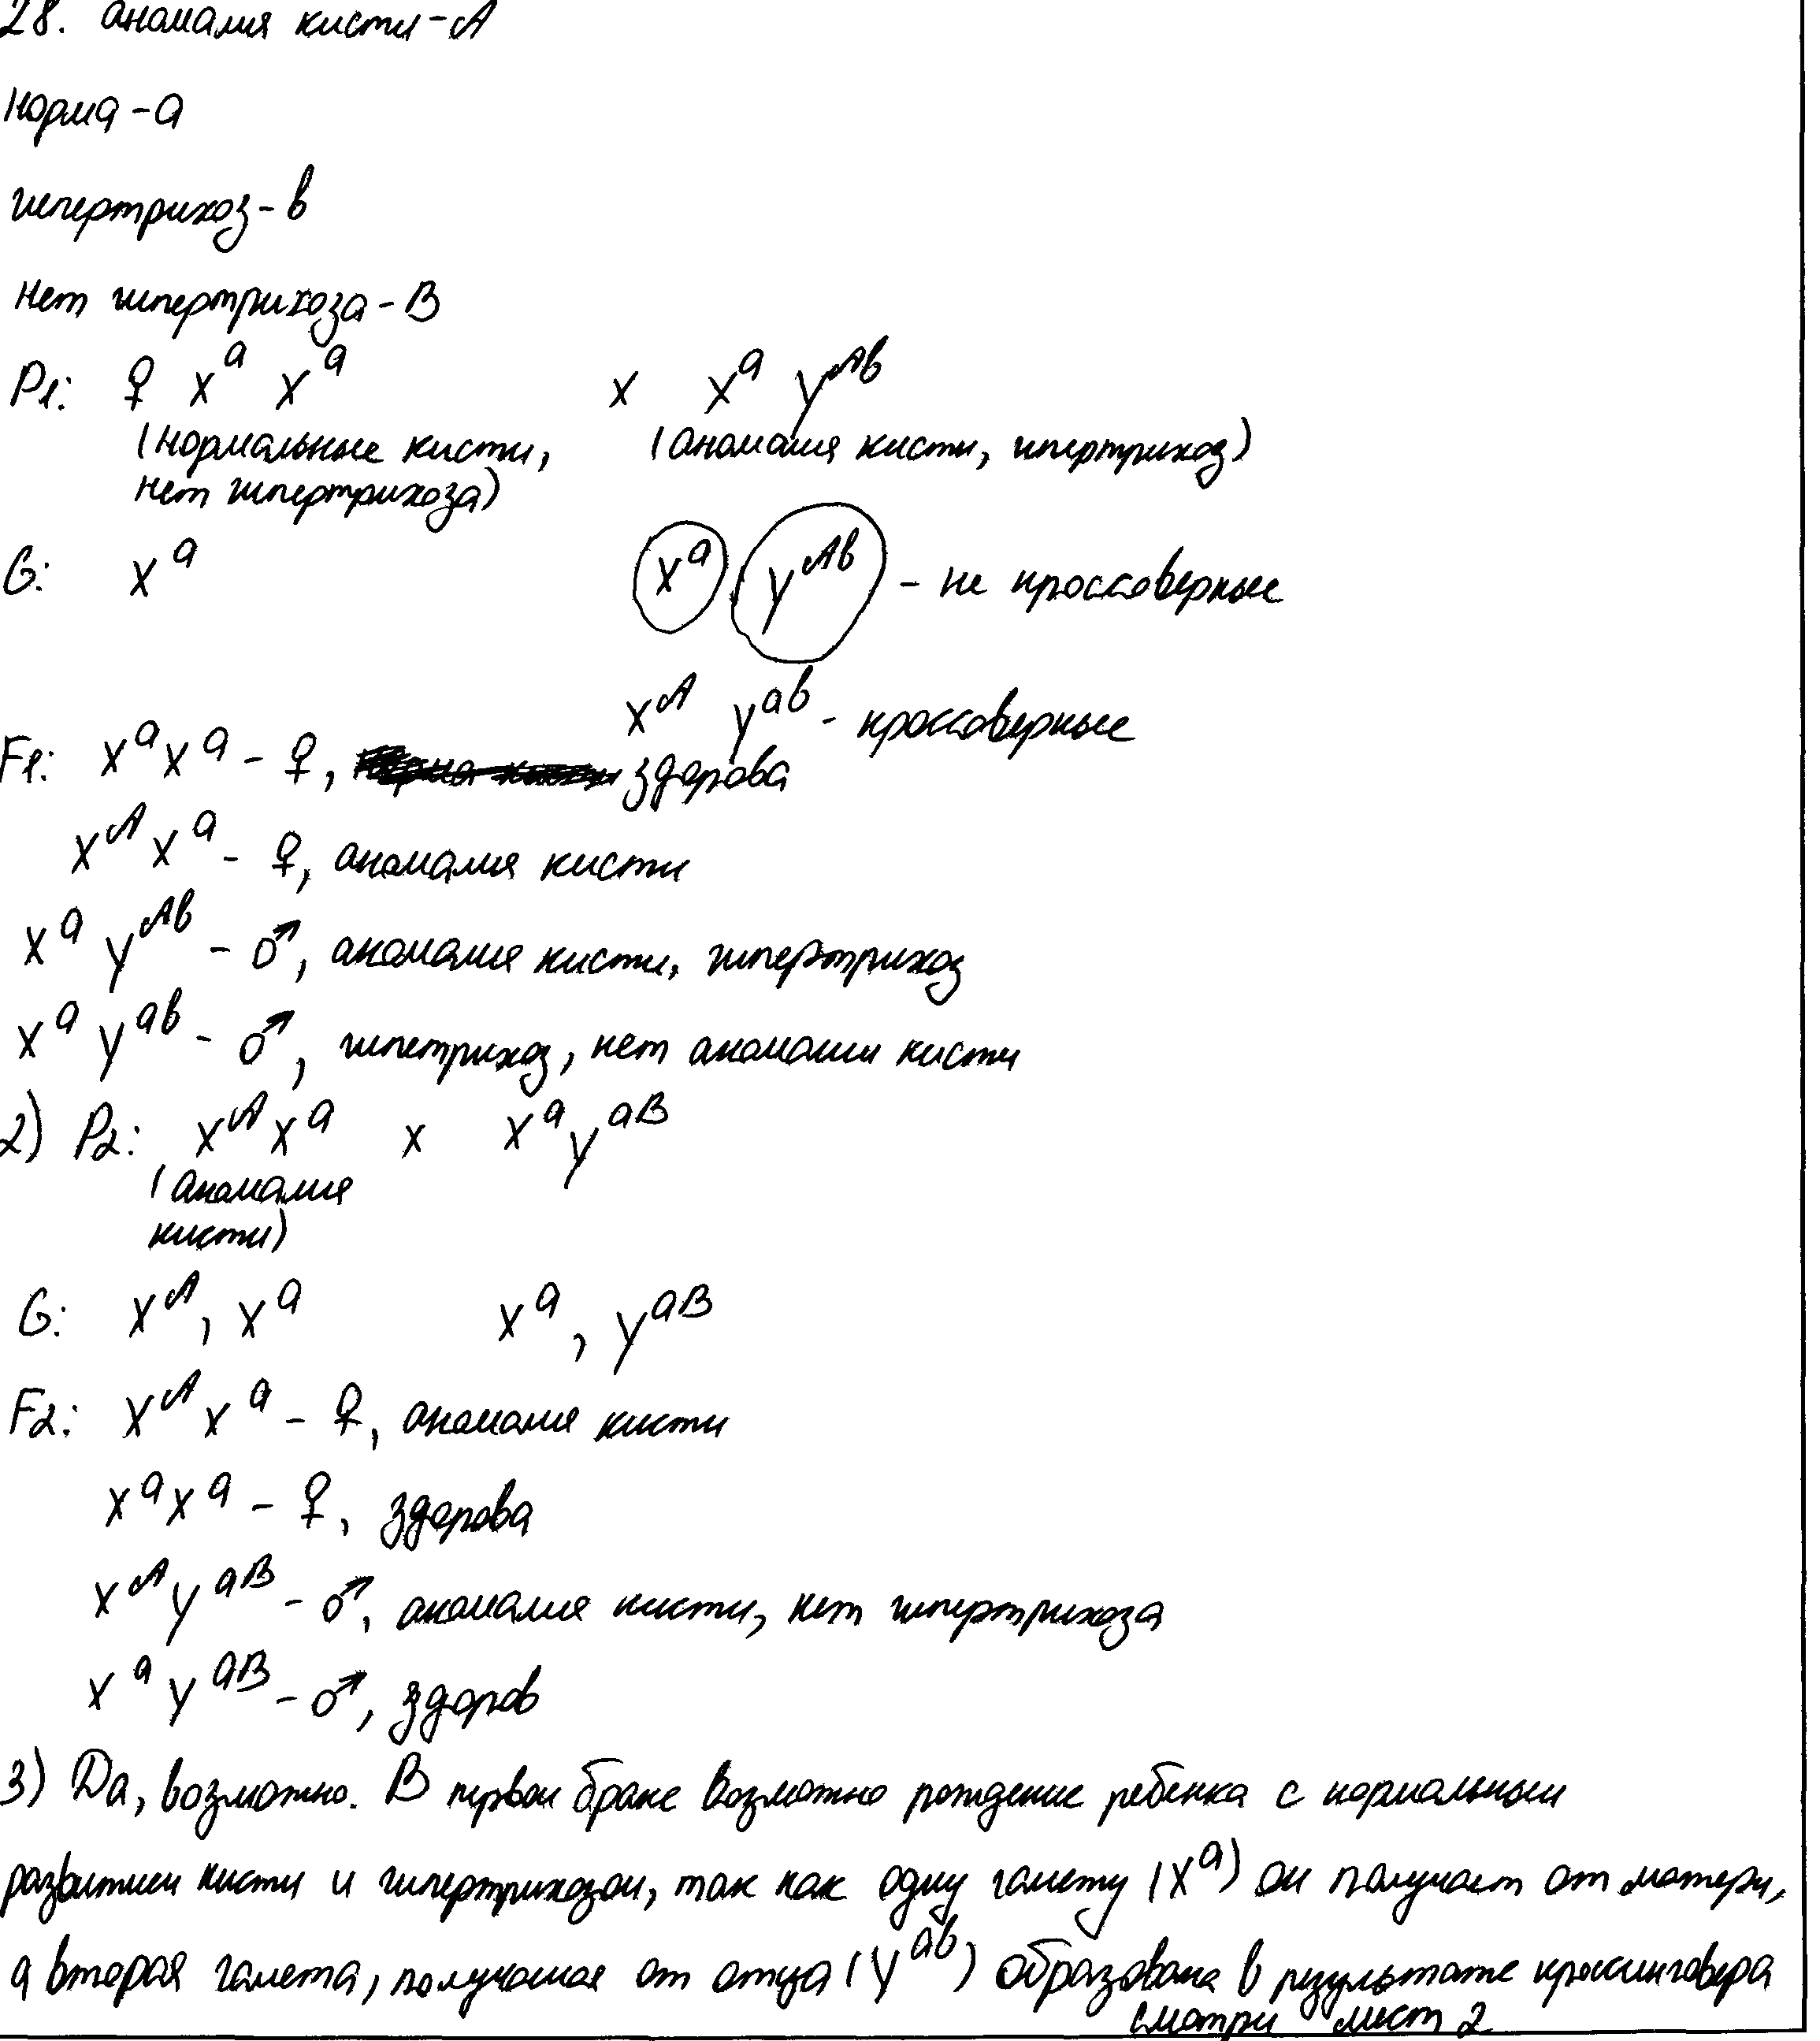 28. аномалия кисти - А
норма - а
гипертрихоз - b
нет гипертрихоза - B
P1: ♀ X^a X^a x X^a Y^Ab
(нормальные кисти, (аномалия кисти, гипертрихоз)
нет гипертрихоза)
G: X^a X^a, Y^Ab - не кроссоверные
X^A Y^ab - кроссоверные
F1: X^a X^a - ♀, здорова
X^A X^a - ♀, аномалия кисти
X^a Y^Ab - ♂, аномалия кисти, гипертрихоз
X^a Y^ab - ♂, гипетрихоз, нет аномалии кисти
2) P2: X^A X^a x X^a Y^aB
(аномалия
кисти)
G: X^A, X^a X^a, Y^aB
F2: X^A X^a - ♀, аномалия кисти
X^a X^a - ♀, здорова
X^A Y^aB - ♂, аномалия кисти, нет гипертрихоза
X^a Y^aB - ♂, здоров
3) Да, возможно. В первом браке возможно рождение ребенка с нормальным
развитием кисти и гипертрихозом, так как одну гамету (X^a) он получает от матери,
а вторая гамета, получаемая от отца (Y^ab) образована в результате кроссинговера
смотри лист 2